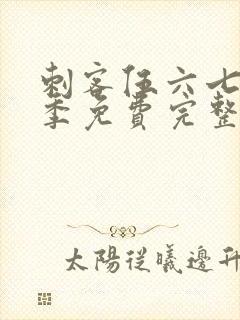 刺客伍六七
季免費完整
太陽從曦邊升